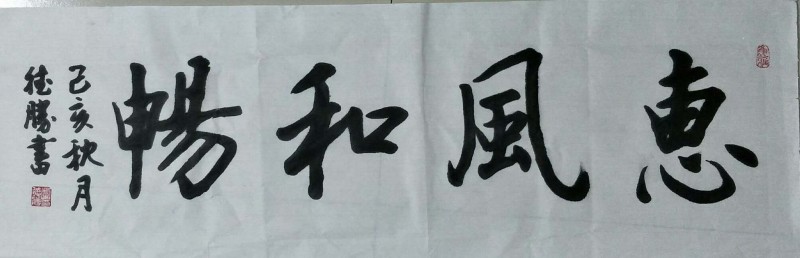 惠風和暢
己亥秋月
德勝書